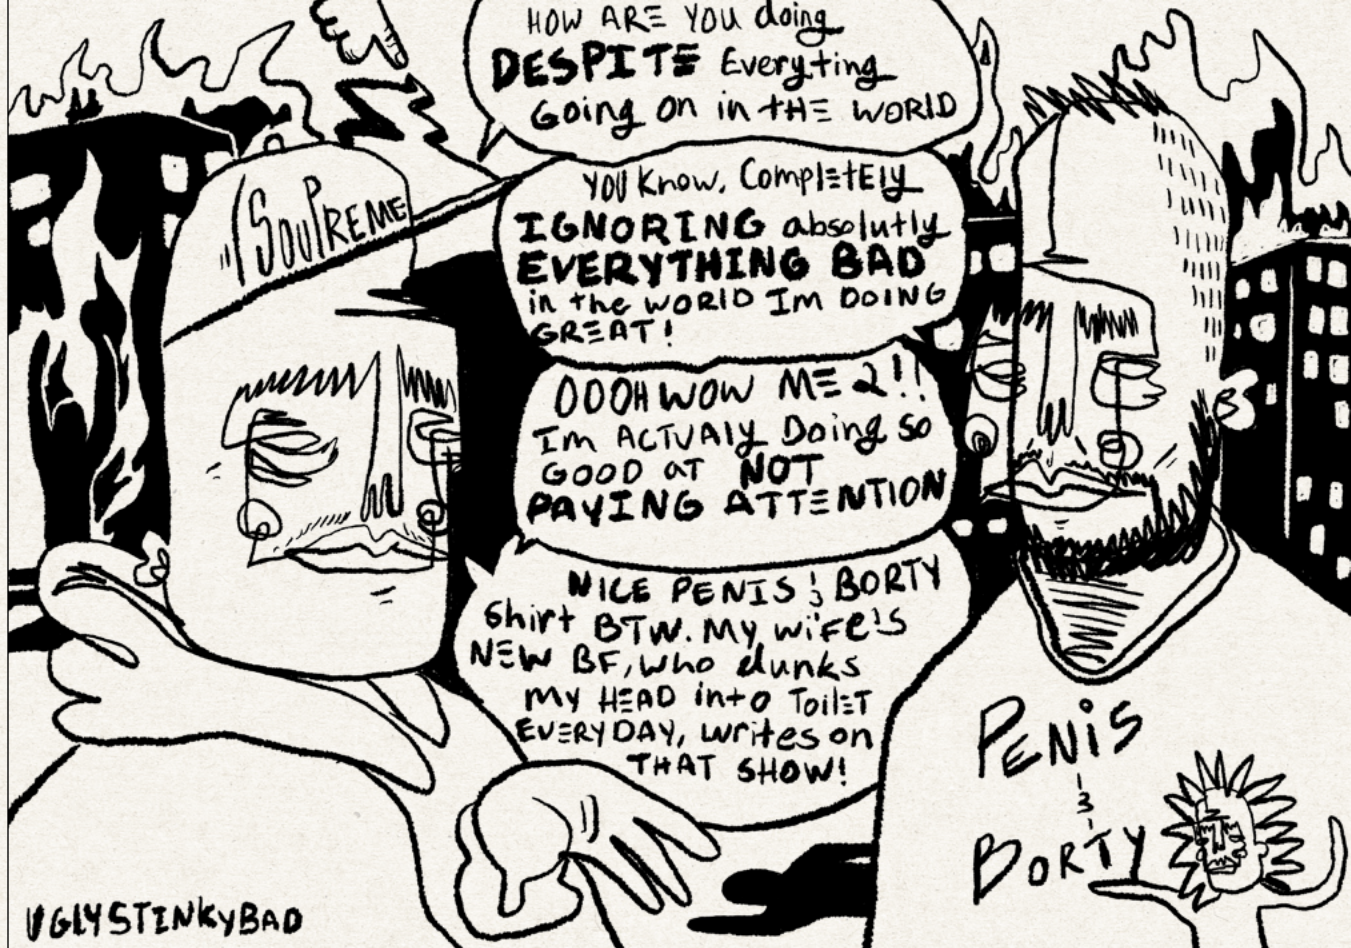 HOW ARE YOU doing
DESPITE Everyting
Going on in tHE WORLD
YOU Know, ComplEtEly
IGNORING absolutly
EVERYTHING BAD
in the WORLD Im DOING
GREAT!
OOOH WOW ME 2!!
Im ACTUAly Doing so
GOOD aT NOT
PAYING ATTENTION
NICE PENIS & BORTY
Shirt BTW. My wiFE's
NEW BF, who dunks
my HEAD into ToilET
EVERYDAY, writes on
THAT SHOW!
SOUPREME
PENiS
&
BORTY
UGLYSTINKYBAD